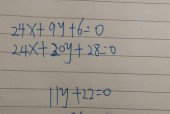 24x+9y+6=0
24x+20y+28=0
11y+22=0